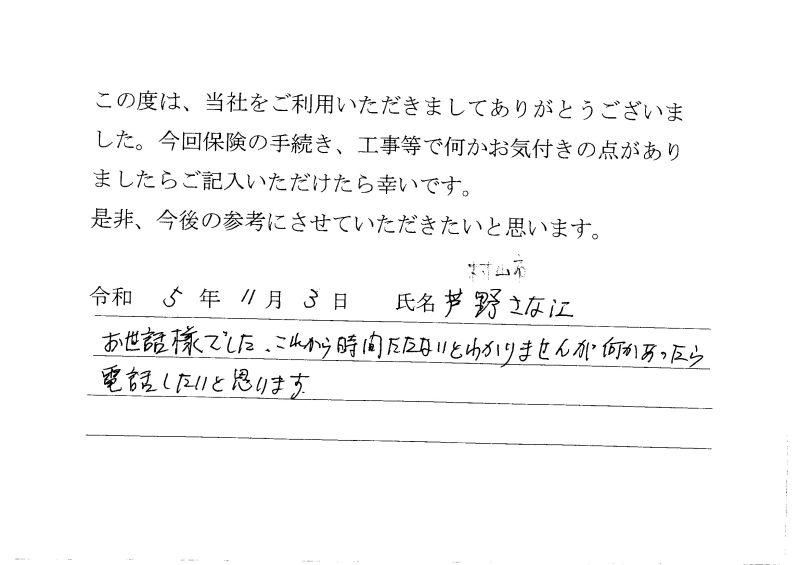 この度は、当社をご利用いただきましてありがとうございま
した。今回保険の手続き、工事等で何かお気付きの点があり
ましたらご記入いただけたら幸いです。
是非、今後の参考にさせていただきたいと思います。
村山市
令和 5 年 11 月 3 日 氏名 芦野さな江
お世話様でした、これから時間たたないとわかりませんが何かあったら
電話したいと思います